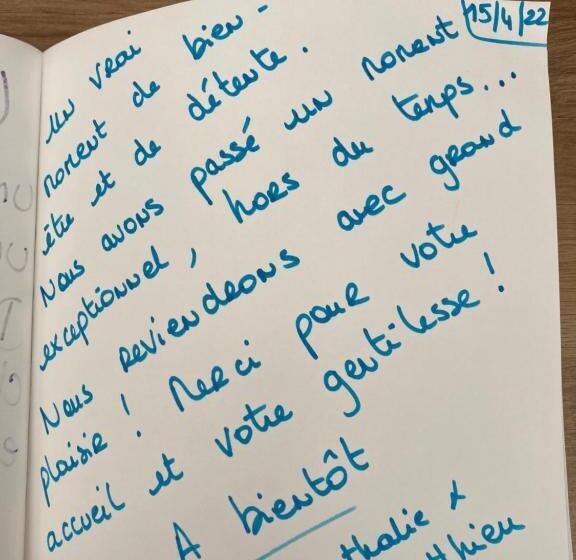 15/4/22
un vrai
moment de bien-
être et de détente.
Nous avons passé un moment
exceptionnel, hors du temps...
Nous reviendrons avec grand
plaisir ! Merci pour votre
accueil et votre gentilesse !
A bientôt
thalie &
thieu